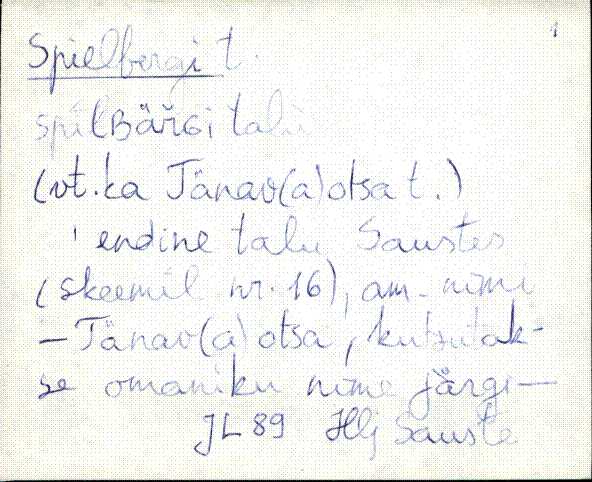 1
Spielbergi t.
spilBäřGi talu
(vt. ka Tänav(a)otsa t.)
endine talu Saustes
(skeemil nr. 16), am. nimi
– Tänav(a)otsa, kutsutak-
se omaniku nime järgi –
JL 89 Hlj Sauste